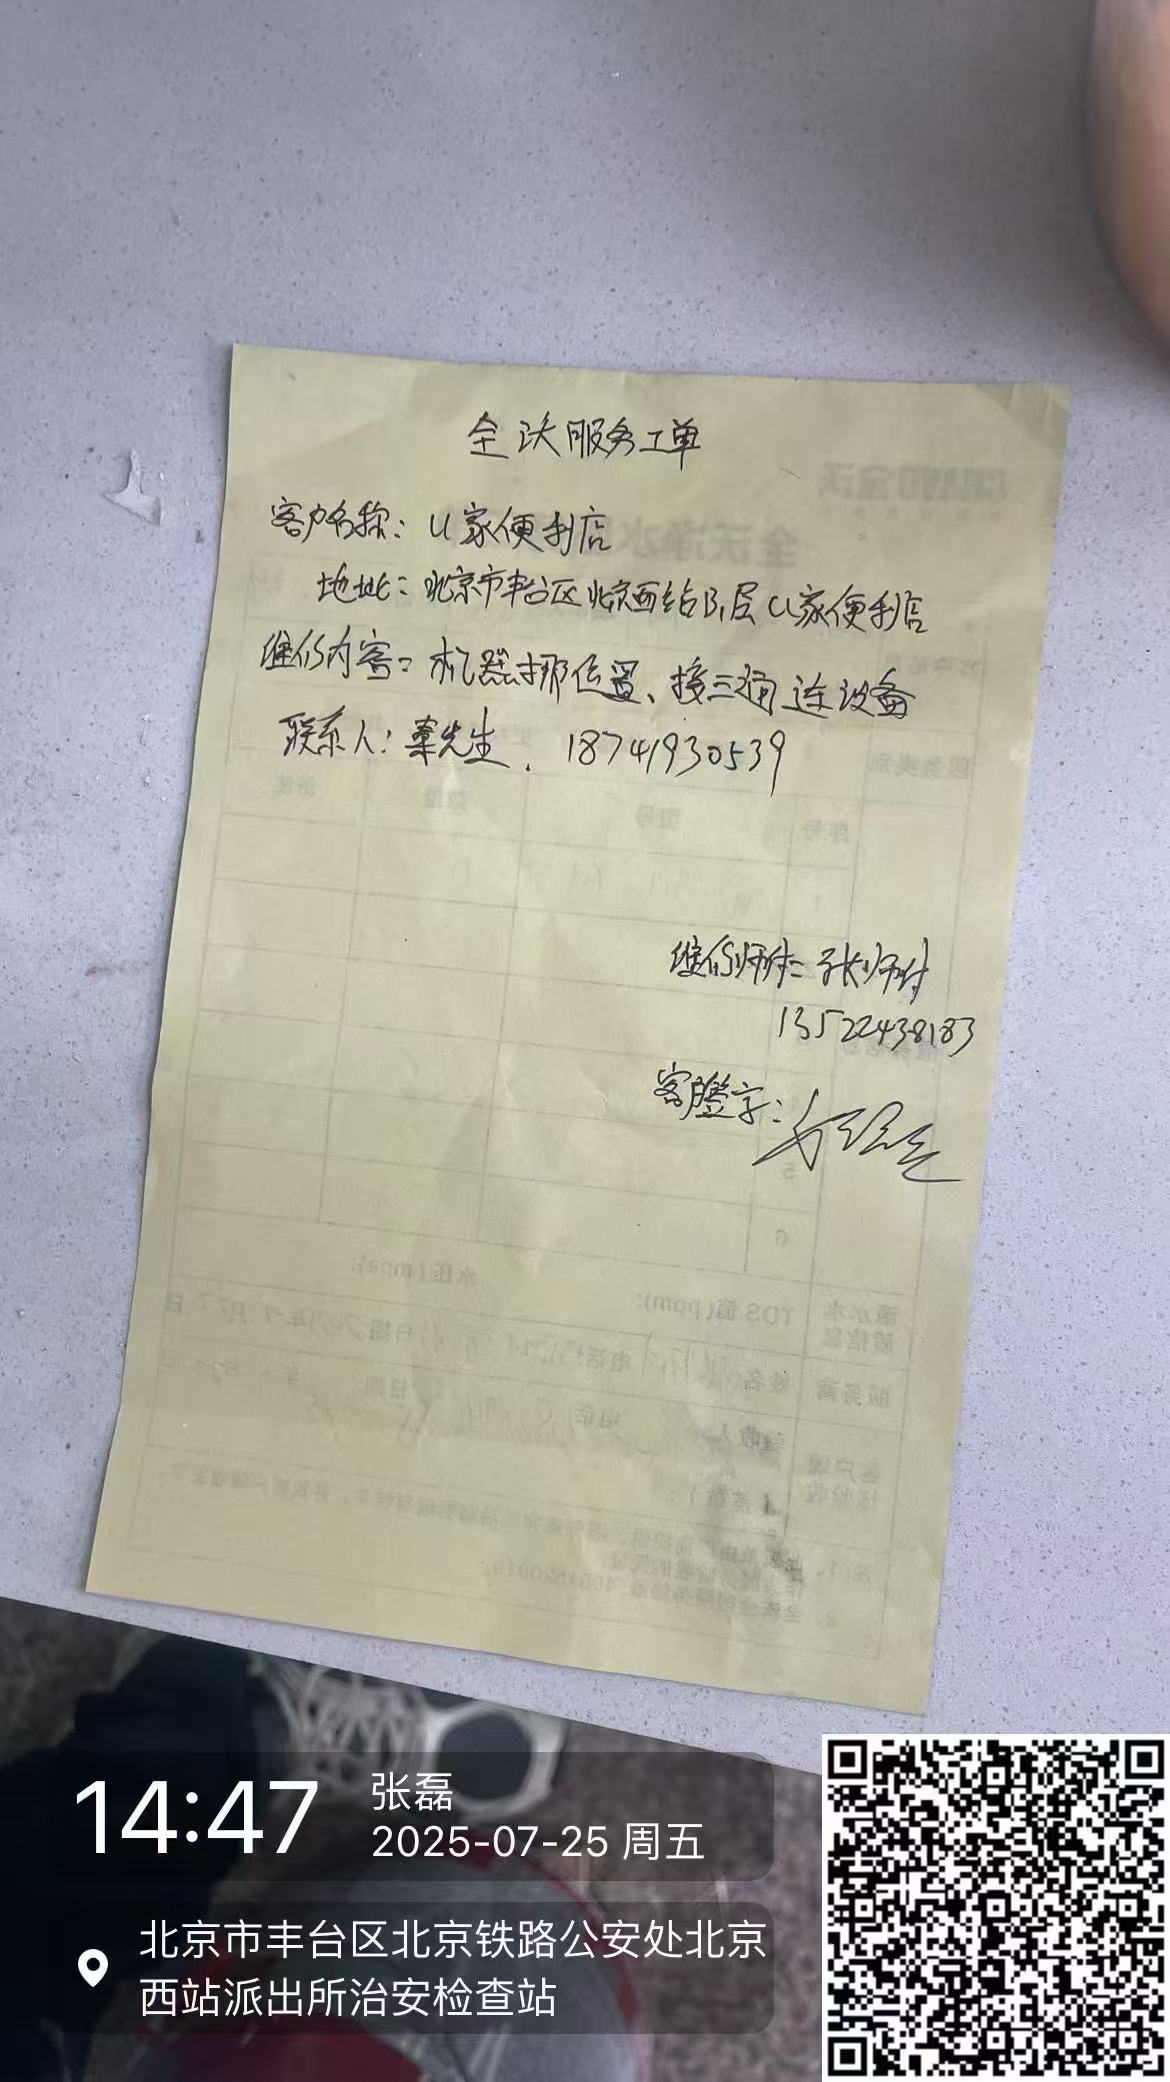 全沃服务工单
客户名称：U家便利店
地址：北京市丰台区北京西站B1层U家便利店
维修内容：机器挪位置、接三通连设备
联系人：秦先生．18741930539
维修师付：张师付
13522438183
客户签字：
14:47
张磊
2025-07-25 周五
北京市丰台区北京铁路公安处北京
西站派出所治安检查站